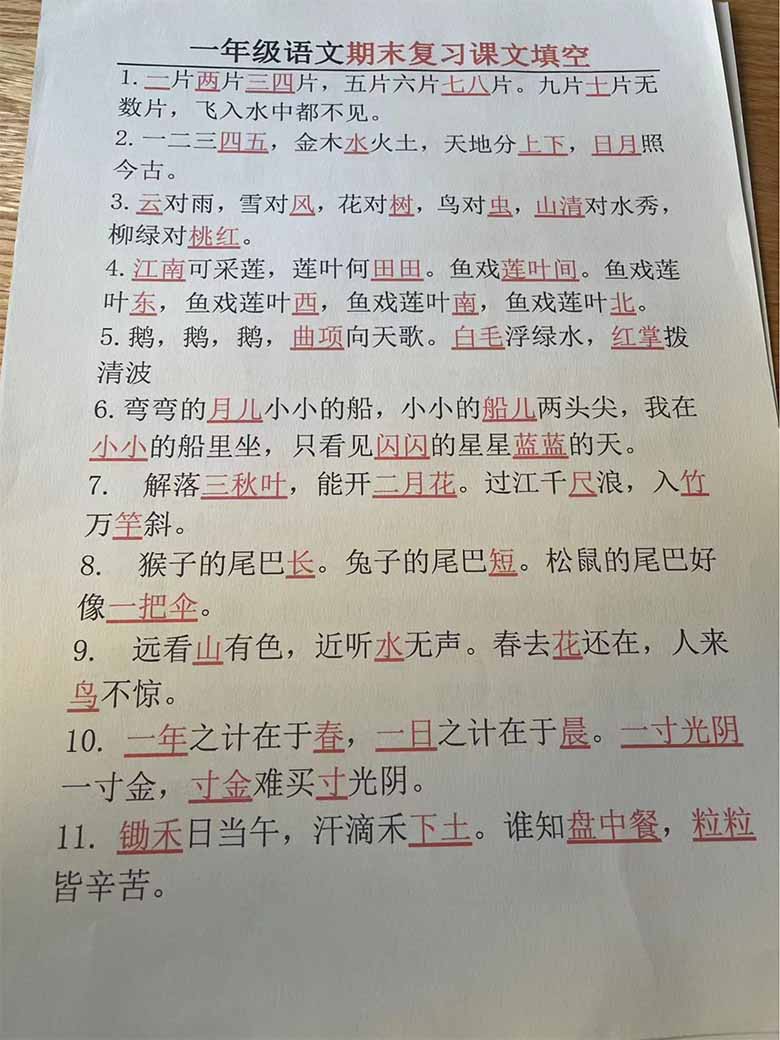 一年级语文期末复习课文填空
1. 一片两片三四片，五片六片七八片。九片十片无
数片，飞入水中都不见。
2. 一二三四五，金木水火土，天地分上下，日月照
今古。
3. 云对雨，雪对风，花对树，鸟对虫，山清对水秀，
柳绿对桃红。
4. 江南可采莲，莲叶何田田。鱼戏莲叶间。鱼戏莲
叶东，鱼戏莲叶西，鱼戏莲叶南，鱼戏莲叶北。
5. 鹅，鹅，鹅，曲项向天歌。白毛浮绿水，红掌拨
清波
6. 弯弯的月儿小小的船，小小的船儿两头尖，我在
小小的船里坐，只看见闪闪的星星蓝蓝的天。
7. 解落三秋叶，能开二月花。过江千尺浪，入竹
万竿斜。
8. 猴子的尾巴长。兔子的尾巴短。松鼠的尾巴好
像一把伞。
9. 远看山有色，近听水无声。春去花还在，人来
鸟不惊。
10. 一年之计在于春，一日之计在于晨。一寸光阴
一寸金，寸金难买寸光阴。
11. 锄禾日当午，汗滴禾下土。谁知盘中餐，粒粒
皆辛苦。